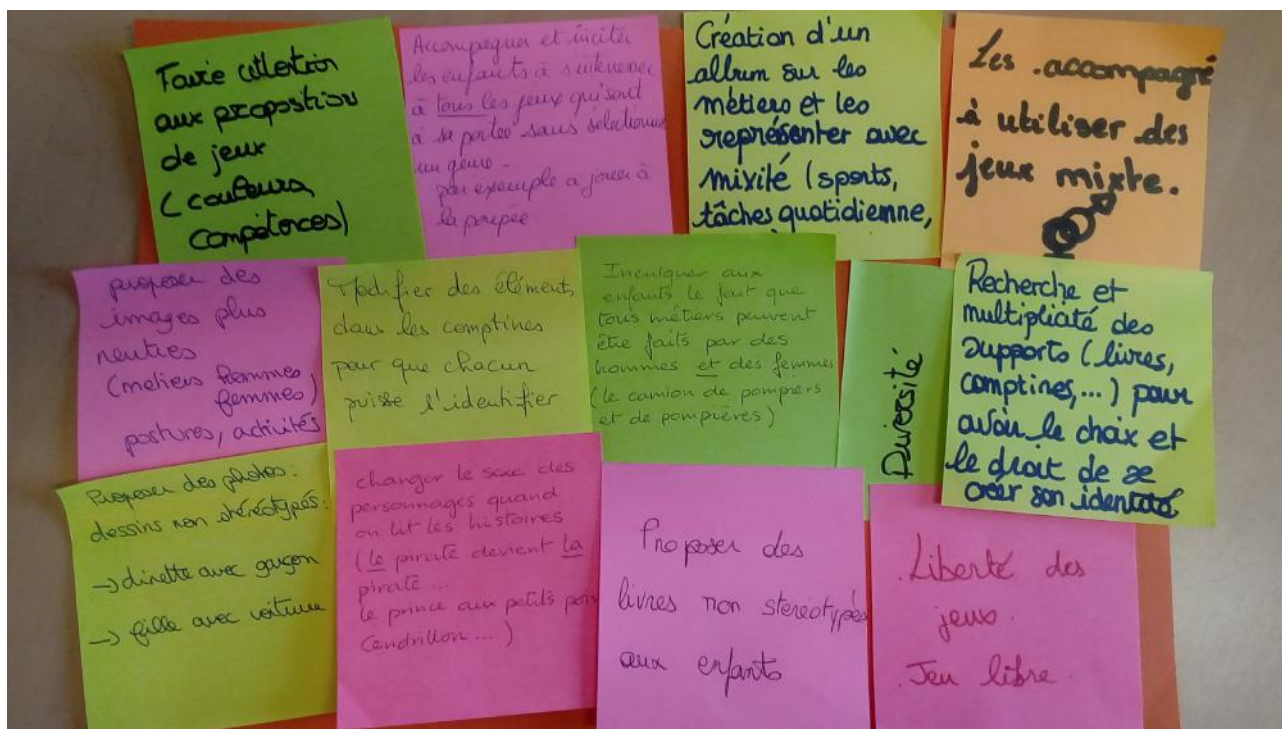 Faire attention
aux proposition
de jeux
(couleurs,
compétences)
Accompagner et inciter
les enfants à s'intéresser
à tous les jeux qui sont
à sa portée sans selectionner
un genre.
par exemple a jouer à
la poupée
Création d'un
album sur les
métiers et les
représenter avec
mixité (sports,
tâches quotidienne,
Les accompagné
à utiliser des
jeux mixte.
proposer des
images plus
neutres
(metiers hommes
femmes)
postures, activités
Modifier des éléments
dans les comptines
pour que chacun
puisse s'identifier
Inculquer aux
enfants le fait que
tous métiers peuvent
être faits par des
hommes et des femmes
(le camion de pompiers
et de pompières)
Diversité
Recherche et
multiplicité des
supports (livres,
comptines,...) pour
avoir le choix et
le droit de se
créer son identité
Proposer des photos:
dessins non stéréotypés:
→ dinette avec garçon
→ fille avec voiture
changer le sexe des
personnages quand
on lit les histoires
(le pirate devient la
pirate ...
le prince aux petits pois
Cendrillon ...)
Proposer des
livres non stereotypés
aux enfants
. Liberté des
jeux.
. Jeu libre.